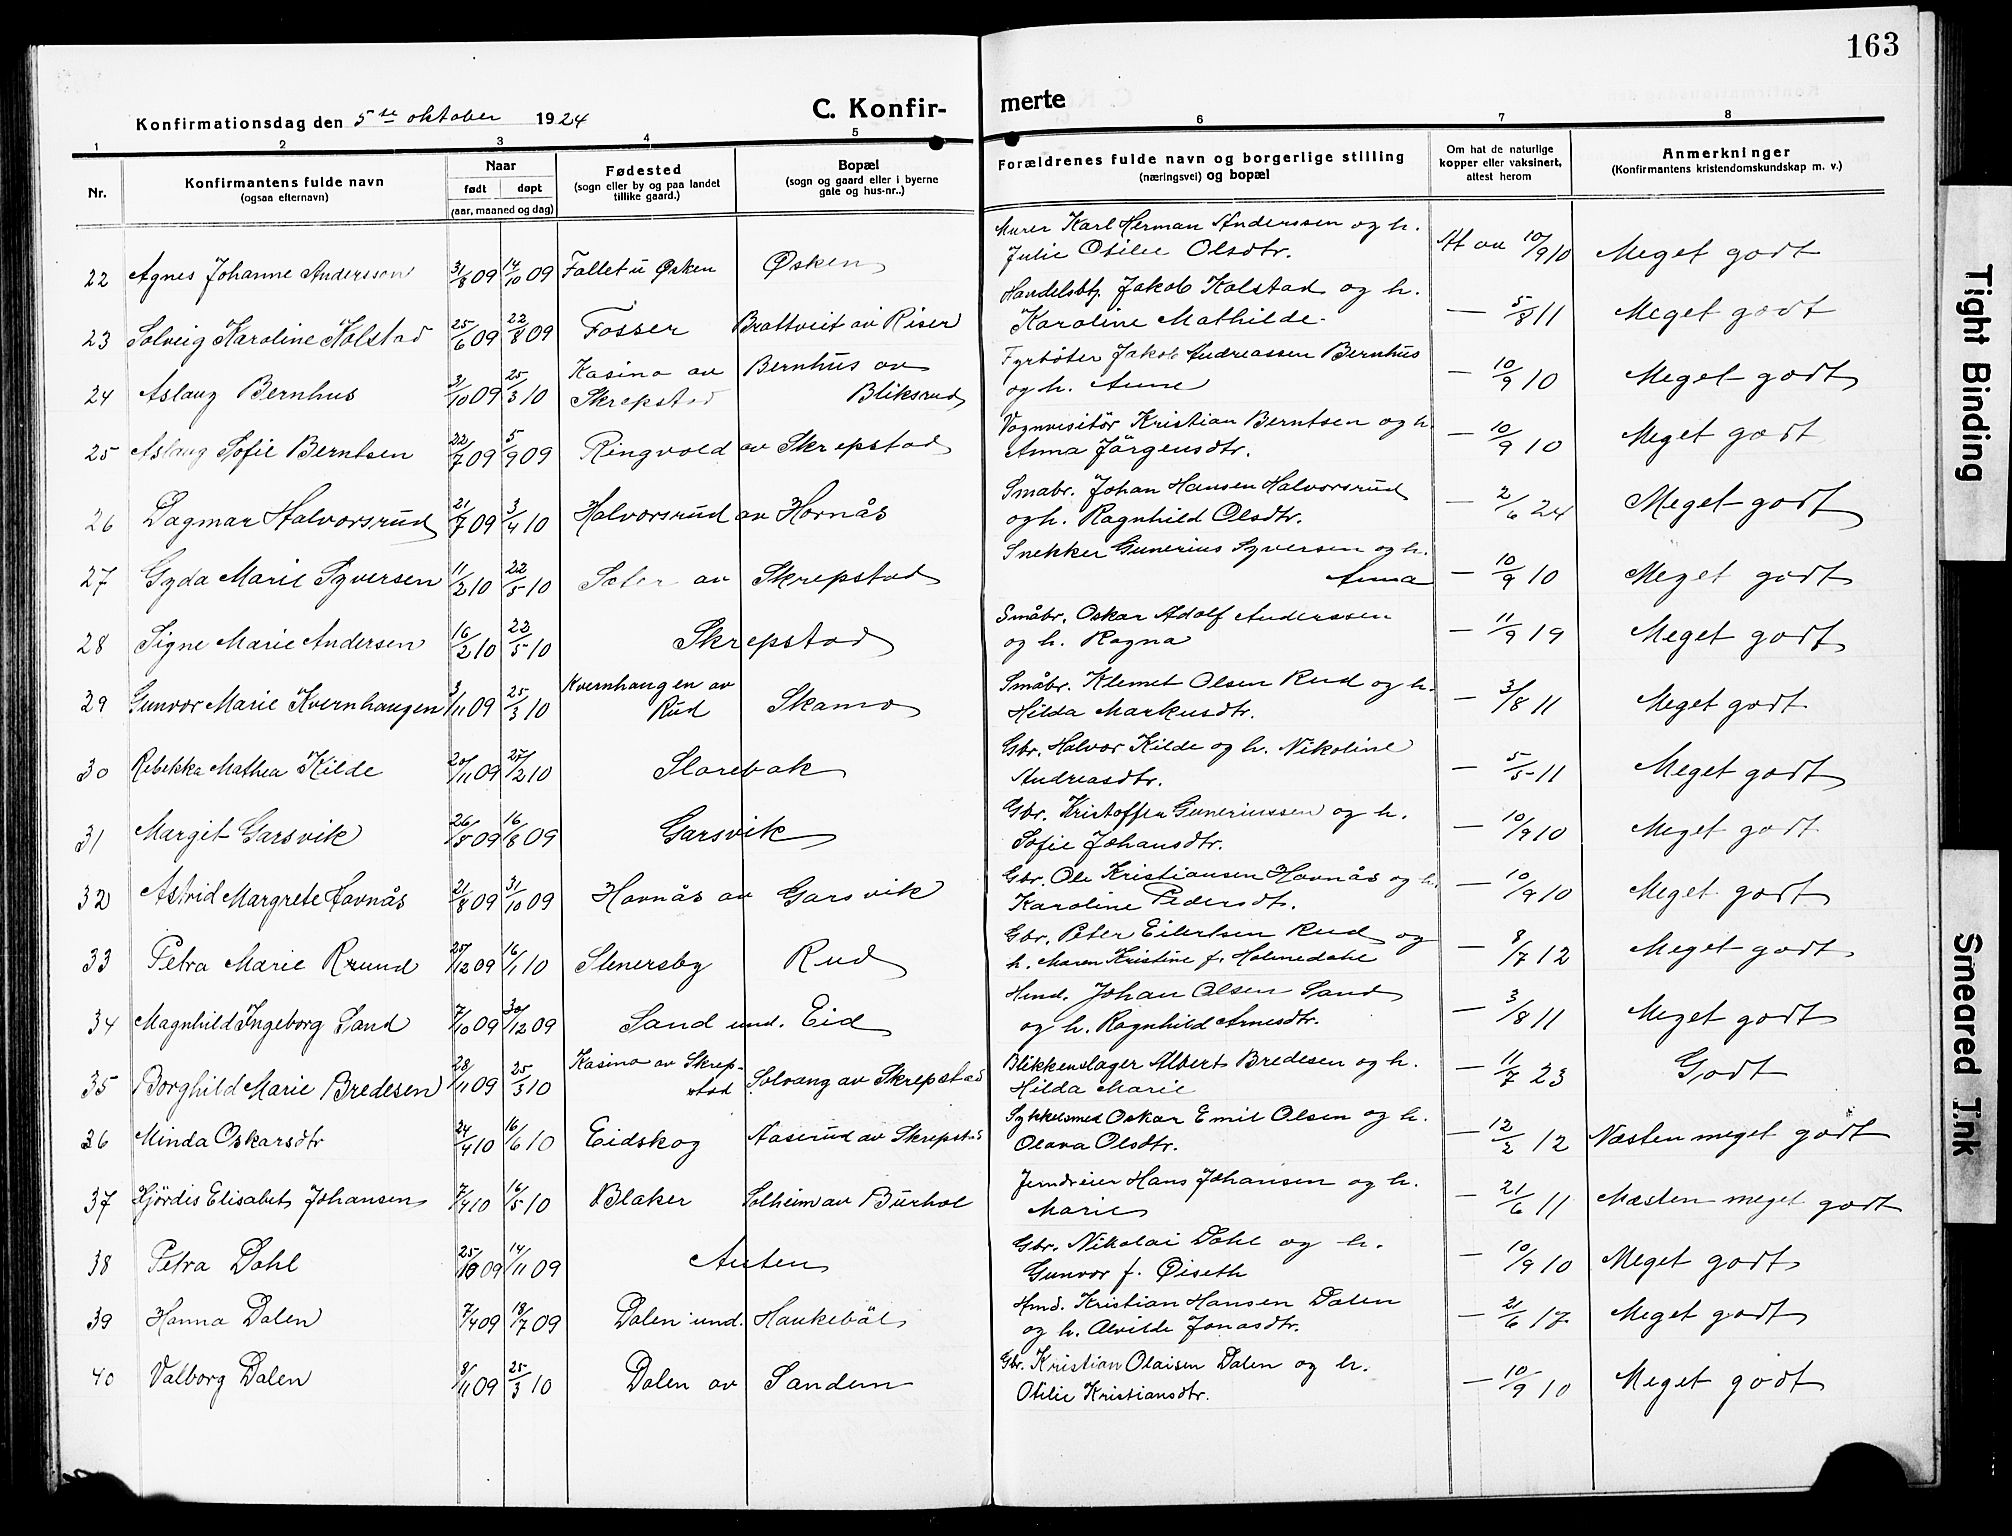 163
Konfirmationsdag den 5te oktober 1924
C. Konfir-
merte
1 2 3 4 5 6 7 8
Nr.
Konfirmantens fulde navn
(ogsaa efternavn)
Naar
født døpt
(aar, maaned og dag)
Fødested
(sogn eller by og paa landet
tillike gaard.)
Bopæl
(sogn og gaard eller i byerne
gate og hus-nr.,)
Forældrenes fulde navn og borgerlige stilling
(næringsvei) og bopæl
Om hat de naturlige
kopper eller vaksinert,
attest herom
Anmerkninger
(Konfirmantens kristendomskundskap m. v.)
Murer Karl Herman Anderssen og h.
22 Agnes Johanne Anderssen 31/8 09 14/10 09 Fallet u Øsken Øsken Julie Otilie Olsdtr. At av 10/9 10 Meget godt
Handelsbtj. Jakob Kolstad og h.
23 Solveig Karoline Kolstad 25/6 09 22/8 09 Fosser Brattveit av Riser Karoline Mathilde. — 5/8 11 Meget godt
Kasino av Bernhus av Fyrbøter Jakob Andreassen Bernhus
24 Aslaug Bernhus 3/10 09 25/3 10 Skrepstad Bliksrud og h. Anne — 10/9 10 Meget godt
Vognvisitör Kristian Berntsen og h.
25 Aslaug Sofie Berntsen 22/7 09 5/9 09 Ringvold av Skrepstad Anna Jörgensdtr. — 10/9 10 Meget godt
Smabr. Johan Hansen Halvorsrud
26 Dagmar Halvorsrud 21/7 09 3/4 10 Halvorsrud av Hornås og h. Ragnhild Olsdtr. — 2/6 24 Meget godt
Snekker Gunerius Syversen og h.
27 Gyda Marie Syversen 11/2 10 22/5 10 Soler av Skrepstad Anna — 10/9 10 Meget godt
Småbr. Oskar Adolf Anderssen
28 Signe Marie Andersen 16/2 10 22/5 10 Skrepstad og h. Ragna — 11/9 19 Meget godt
Kvernhaugen av Småbr. Klemet Olsen Rud og h.
29 Gunvor Marie Kvernhaugen 3/11 09 25/3 10 Rud Skamo Hilda Markusdtr. — 3/8 11 Meget godt
Gbr. Halvor Kilde og h. Nikoline
30 Rebekka Mathea Kilde 20/11 09 27/2 10 Slorebak Andreasdtr. — 5/5 11 Meget godt
Gbr. Kristoffer Guneriussen og h.
31 Margit Garsvik 26/5 09 16/8 09 Garsvik Sofie Johansdtr. — 10/9 10 Meget godt
Gbr. Ole Kristiansen Havnås og h.
32 Astrid Margrete Havnås 21/8 09 31/10 09 Havnås av Garsvik Karoline Pedersdt. — 10/9 10 Meget godt
Gbr. Peter Eilertsen Rud og
33 Petra Marie Ruud 25/12 09 16/1 10 Stenersby Rud h. Maren Kristine f. Holmedahl — 8/7 12 Meget godt
Hmd. Johan Olsen Sand
34 Magnhild Ingeborg Sand 7/10 09 30/12 09 Sand und. Eid og h. Ragnhild Arnesdtr. — 3/8 11 Meget godt
Kasino av Skrep- Blikkenslager Albert Bredesen og h.
35 Borghild Marie Bredesen 28/11 09 25/3 10 stad Solvang av Skrepstad Hilda Marie — 11/7 23 Godt
Sykkelsmed Oskar Emil Olsen og h.
36 Minda Oskarsdtr 24/4 10 16/6 10 Eidskog Aaserud av Skrepstad Olava Olsdtr. — 12/2 12 Næsten meget godt
Jerndreier Hans Johansen og h.
37 Hjördis Elisabet Johansen 7/4 10 16/5 10 Blaker Solheim av Burhol Marie — 21/6 11 Næsten meget godt
Gbr. Nikolai Dahl og h.
38 Petra Dahl 25/10 09 14/11 09 Auten Gunvor f. Øiseth — 10/9 10 Meget godt
Hmd. Kristian Hansen Dalen
39 Hanna Dalen 7/4 09 18/7 09 Dalen und. Haukebøl og h. Alvilde Jonasdtr. — 21/6 17 Meget godt
Gbr. Kristian Olaisen Dalen og h.
40 Valborg Dalen 8/11 09 25/3 10 Dalen av Sandem Otilie Kristiansdtr. — 10/9 10 Meget godt
Tight Binding
Smeared Ink